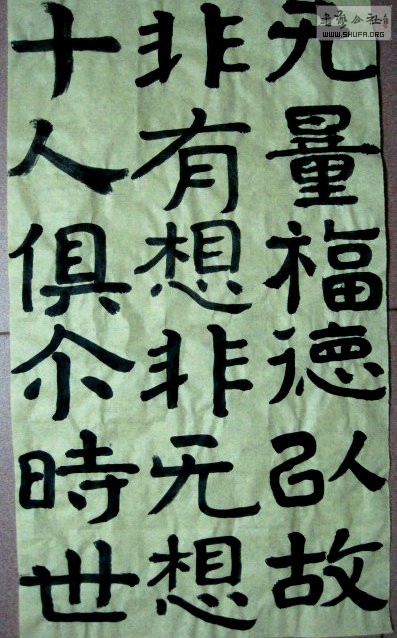 无量福德以故
非有想非无想
十人俱尒時世
WWW.SHUFA.ORG